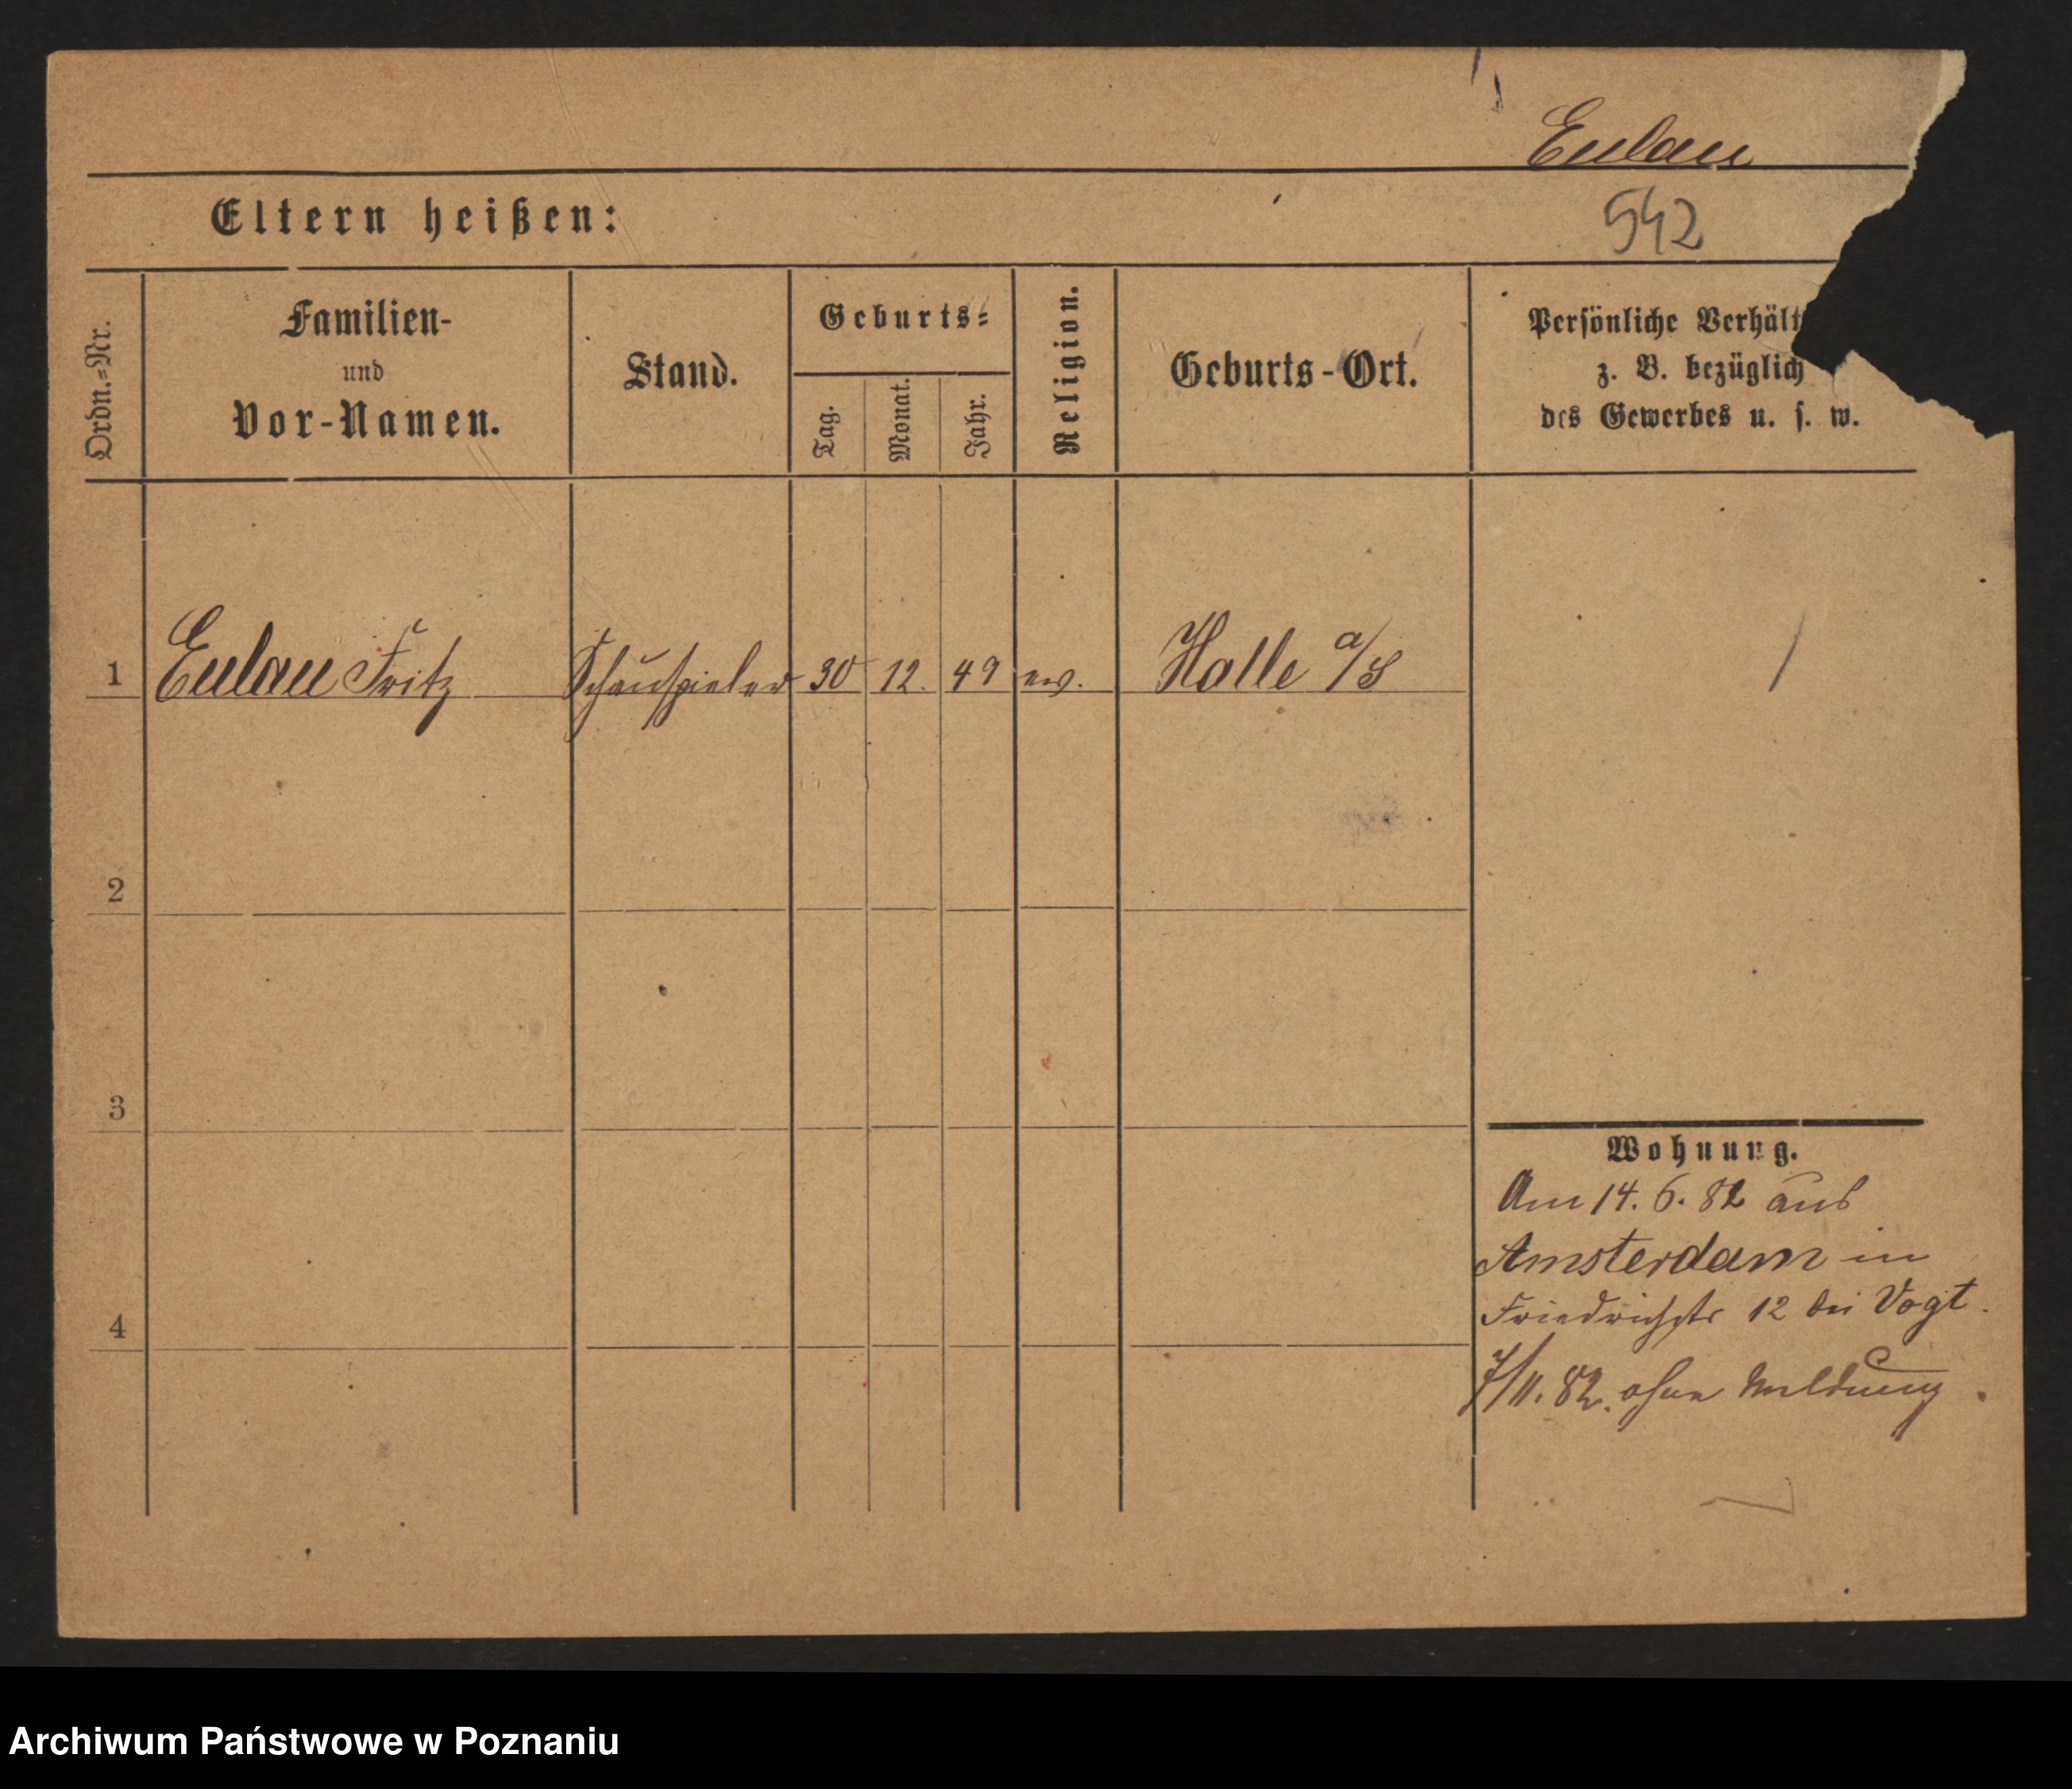 Eulau
Eltern heißen:
542
Ordn.=Nr.
Familien-
und
Vor-Namen.
Stand.
Geburts=
Tag.
Monat.
Jahr.
Religion.
Geburts-Ort.
Persönliche Verhält
z. B. bezüglich
des Gewerbes u. s. w.
1 Eulau Fritz Schauspieler 30 12. 49 ev. Halle a/S
2
3
4
Wohnung.
Am 14. 6. 82 aus
Amsterdam in
Friedrichstr 12 bei Vogt.
7/11. 82. ohne Meldung.
Archiwum Państwowe w Poznaniu